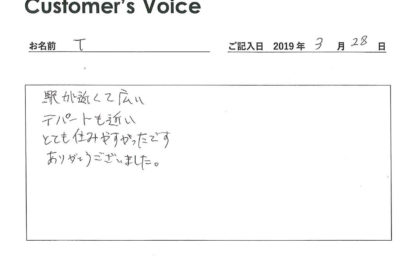 Customer's Voice
お名前 T ご記入日 2019年 3 月 28 日
駅が近くて広い
デパートも近い
とても住みやすかったです
ありがとうございました。